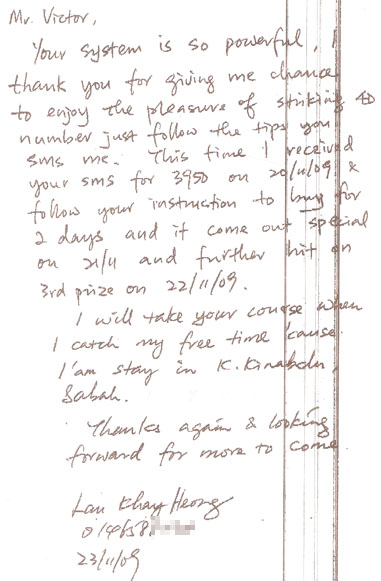 Mr. Victor,
Your system is so powerful, I
thank you for giving me chance
to enjoy the pleasure of striking 4D
number just follow the tips you
sms me. This time I received
your sms for 3950 on 20/11/09 &
follow your instruction to buy for
2 days and it come out special
on 21/11 and further hit on
3rd prize on 22/11/09.
I will take your course when
I catch my free time 'cause
I'am stay in K. Kinabalu,
Sabah.
Thanks again & looking
forward for more to come
Lau Khay Heong
014658
23/11/09